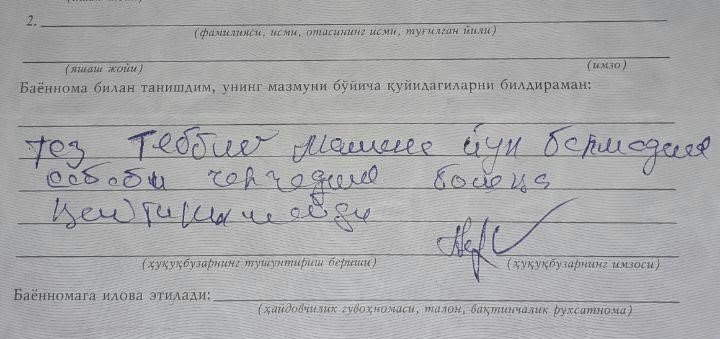 2.
(фамилияси, исми, отасининг исми, туғилган йили)
(яшаш жойи) (имзо)
Баённома билан танишдим, унинг мазмуни бўйича қуйидагиларни билдираман:
тез теббий машене йул бермадим
сабаби
(ҳуқуқбузарнинг тушунтириш бериши) (ҳуқуқбузарнинг имзоси)
Баённомага илова этилади:
(ҳайдовчилик гувоҳномаси, талон, вақтинчалик рухсатнома)